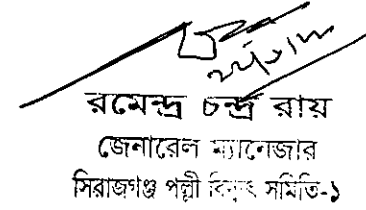 রমেন্দ্র চন্দ্র রায়
জেনারেল ম্যানেজার
সিরাজগঞ্জ পল্লী বিদ্যুৎ সমিতি-১